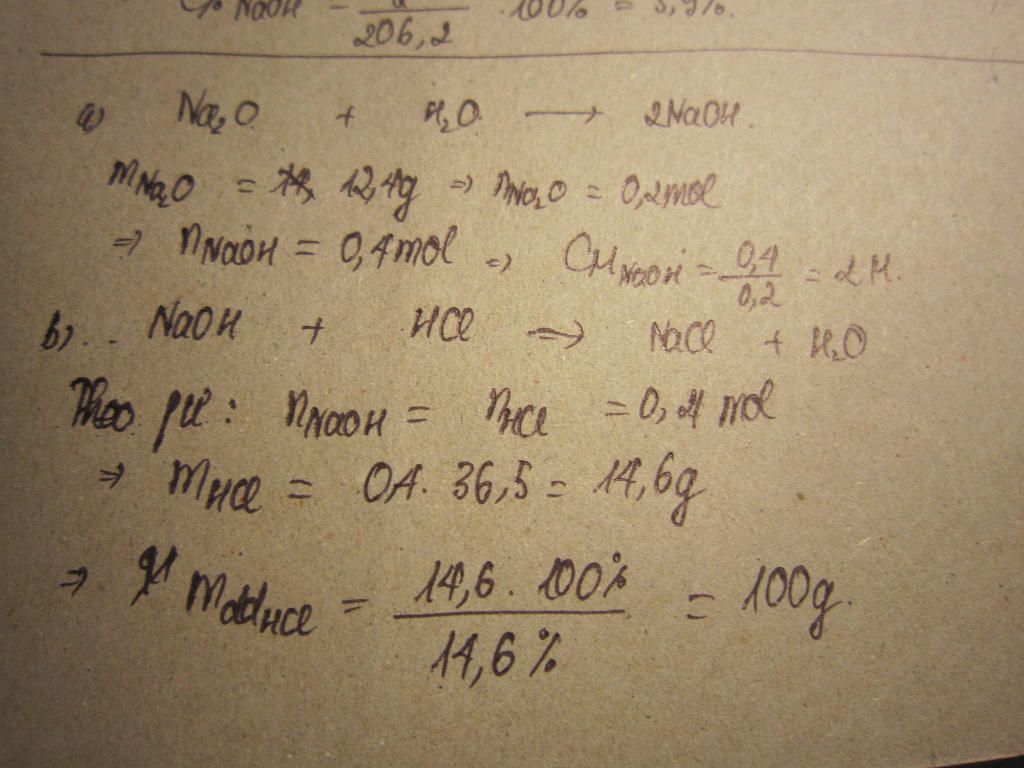 C% NaOH = /206,2 . 100% = 3,9%.
a) Na₂O + H₂O ⟶ 2NaOH.
mNa₂O = 12,4g => nNa₂O = 0,2mol
=> nNaOH = 0,4mol => CM NaOH = 0,4/0,2 = 2M.
b) .. NaOH + HCl => NaCl + H₂O
Theo pt : nNaOH = nHCl = 0,4 mol
=> mHCl = 04. 36,5 = 14,6g
=> mddHCl = 14,6 . 100%/14,6% = 100g.